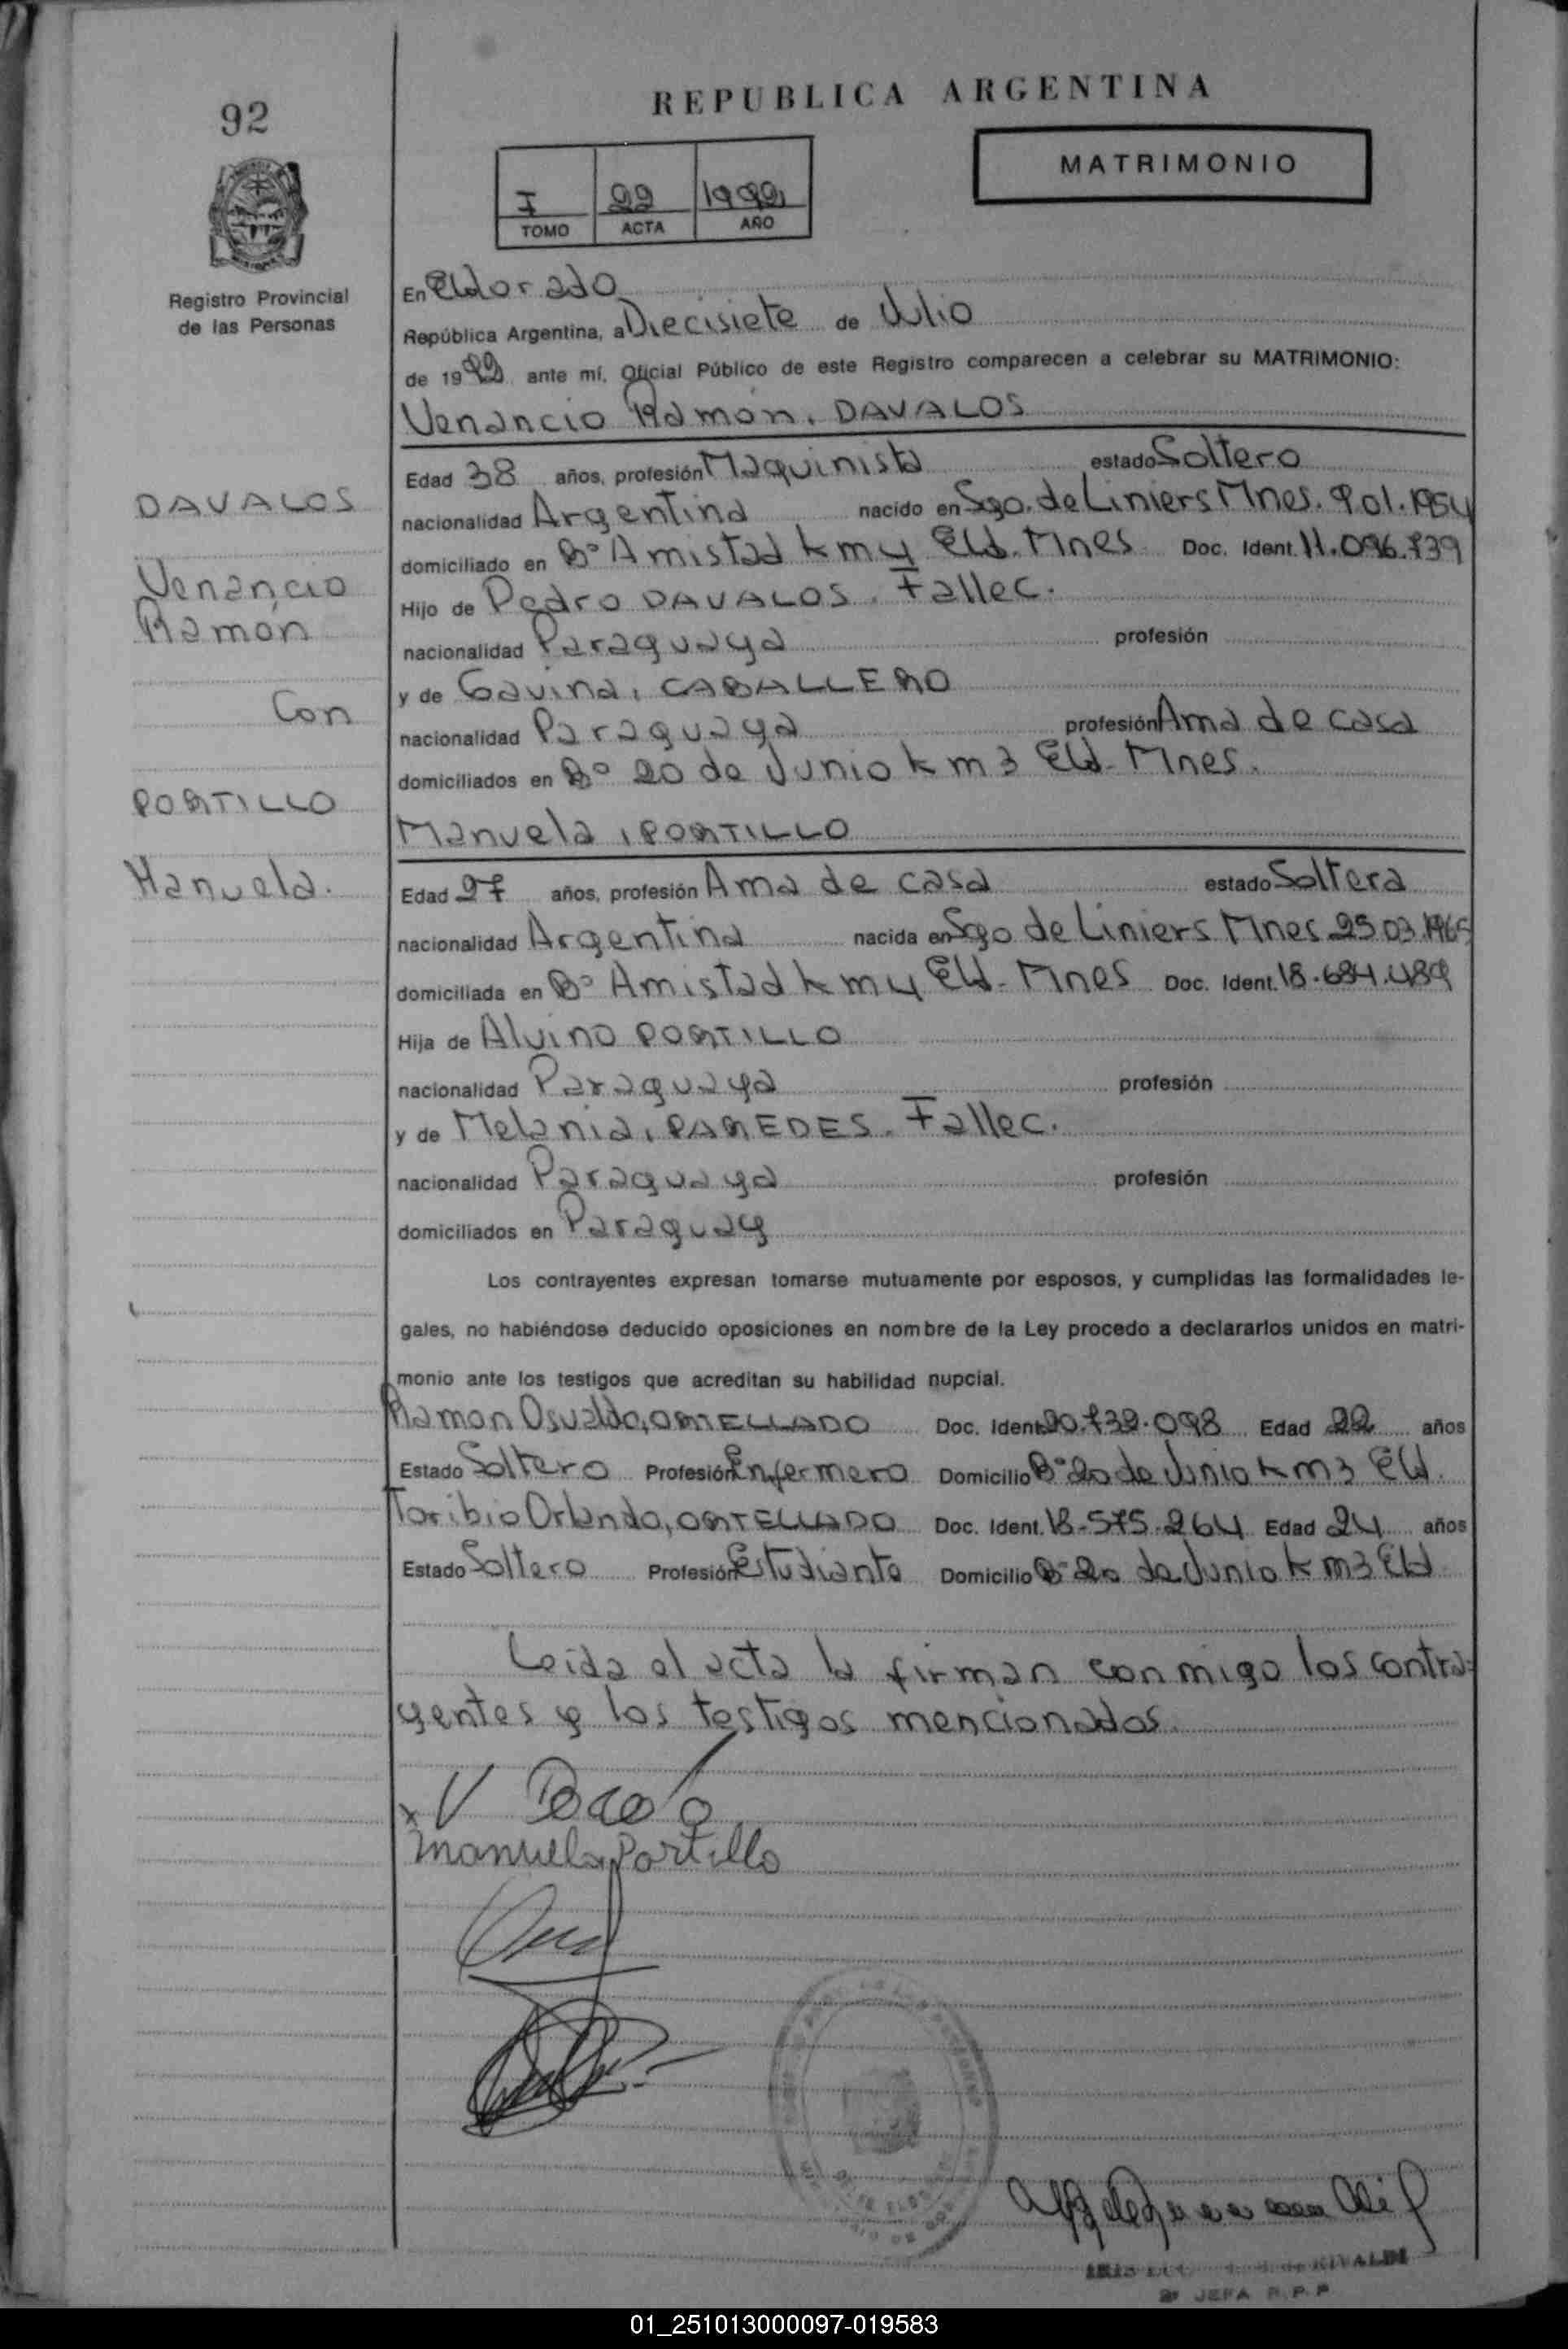 92
REPUBLICA ARGENTINA
MATRIMONIO
I 22 1992
TOMO ACTA AÑO
Registro Provincial
de las Personas
En Eldorado
República Argentina, a Diecisiete de Julio
de 1992 ante mí, Oficial Público de este Registro comparecen a celebrar su MATRIMONIO:
Venancio Ramón, DAVALOS
Edad 38 años, profesión Maquinista estado Soltero
DAVALOS
nacionalidad Argentina nacido en Sgo. de Liniers Mnes. 9.01.1954
domiciliado en Bº Amistad km 4 Eld. Mnes Doc. Ident. 11.096.739
Venancio
Hijo de Pedro DAVALOS. Fallec.
Ramón
nacionalidad Paraguaya profesión
y de Gavina, CABALLERO
Con
nacionalidad Paraguaya profesión Ama de casa
domiciliados en Bº 20 de Junio km 3 Eld. Mnes.
PORTILLO
Manuela, PORTILLO
Manuela.
Edad 27 años, profesión Ama de casa estado Soltera
nacionalidad Argentina nacida en Sgo de Liniers Mnes 25.03.1965
domiciliada en Bº Amistad km 4 Eld. Mnes Doc. Ident. 18.684.489
Hija de Alvino PORTILLO
nacionalidad Paraguaya profesión
y de Melania, PAREDES. Fallec.
nacionalidad Paraguaya profesión
domiciliados en Paraguay
Los contrayentes expresan tomarse mutuamente por esposos, y cumplidas las formalidades le-
gales, no habiéndose deducido oposiciones en nombre de la Ley procedo a declararlos unidos en matri-
monio ante los testigos que acreditan su habilidad nupcial.
Ramon Osvaldo, ORTELLADO Doc. Ident. 20.732.098 Edad 22 años
Estado Soltero Profesión Enfermero Domicilio Bº 20 de Junio km 3 Eld.
Toribio Orlando, ORTELLADO Doc. Ident. 18.575.264 Edad 24 años
Estado Soltero Profesión Estudiante Domicilio Bº 20 de Junio km 3 Eld
Leída el acta la firman conmigo los contra-
yentes y los testigos mencionados.
Manuela Portillo
de RIVALDI
2º JEFA R.P.P
01_251013000097-019583